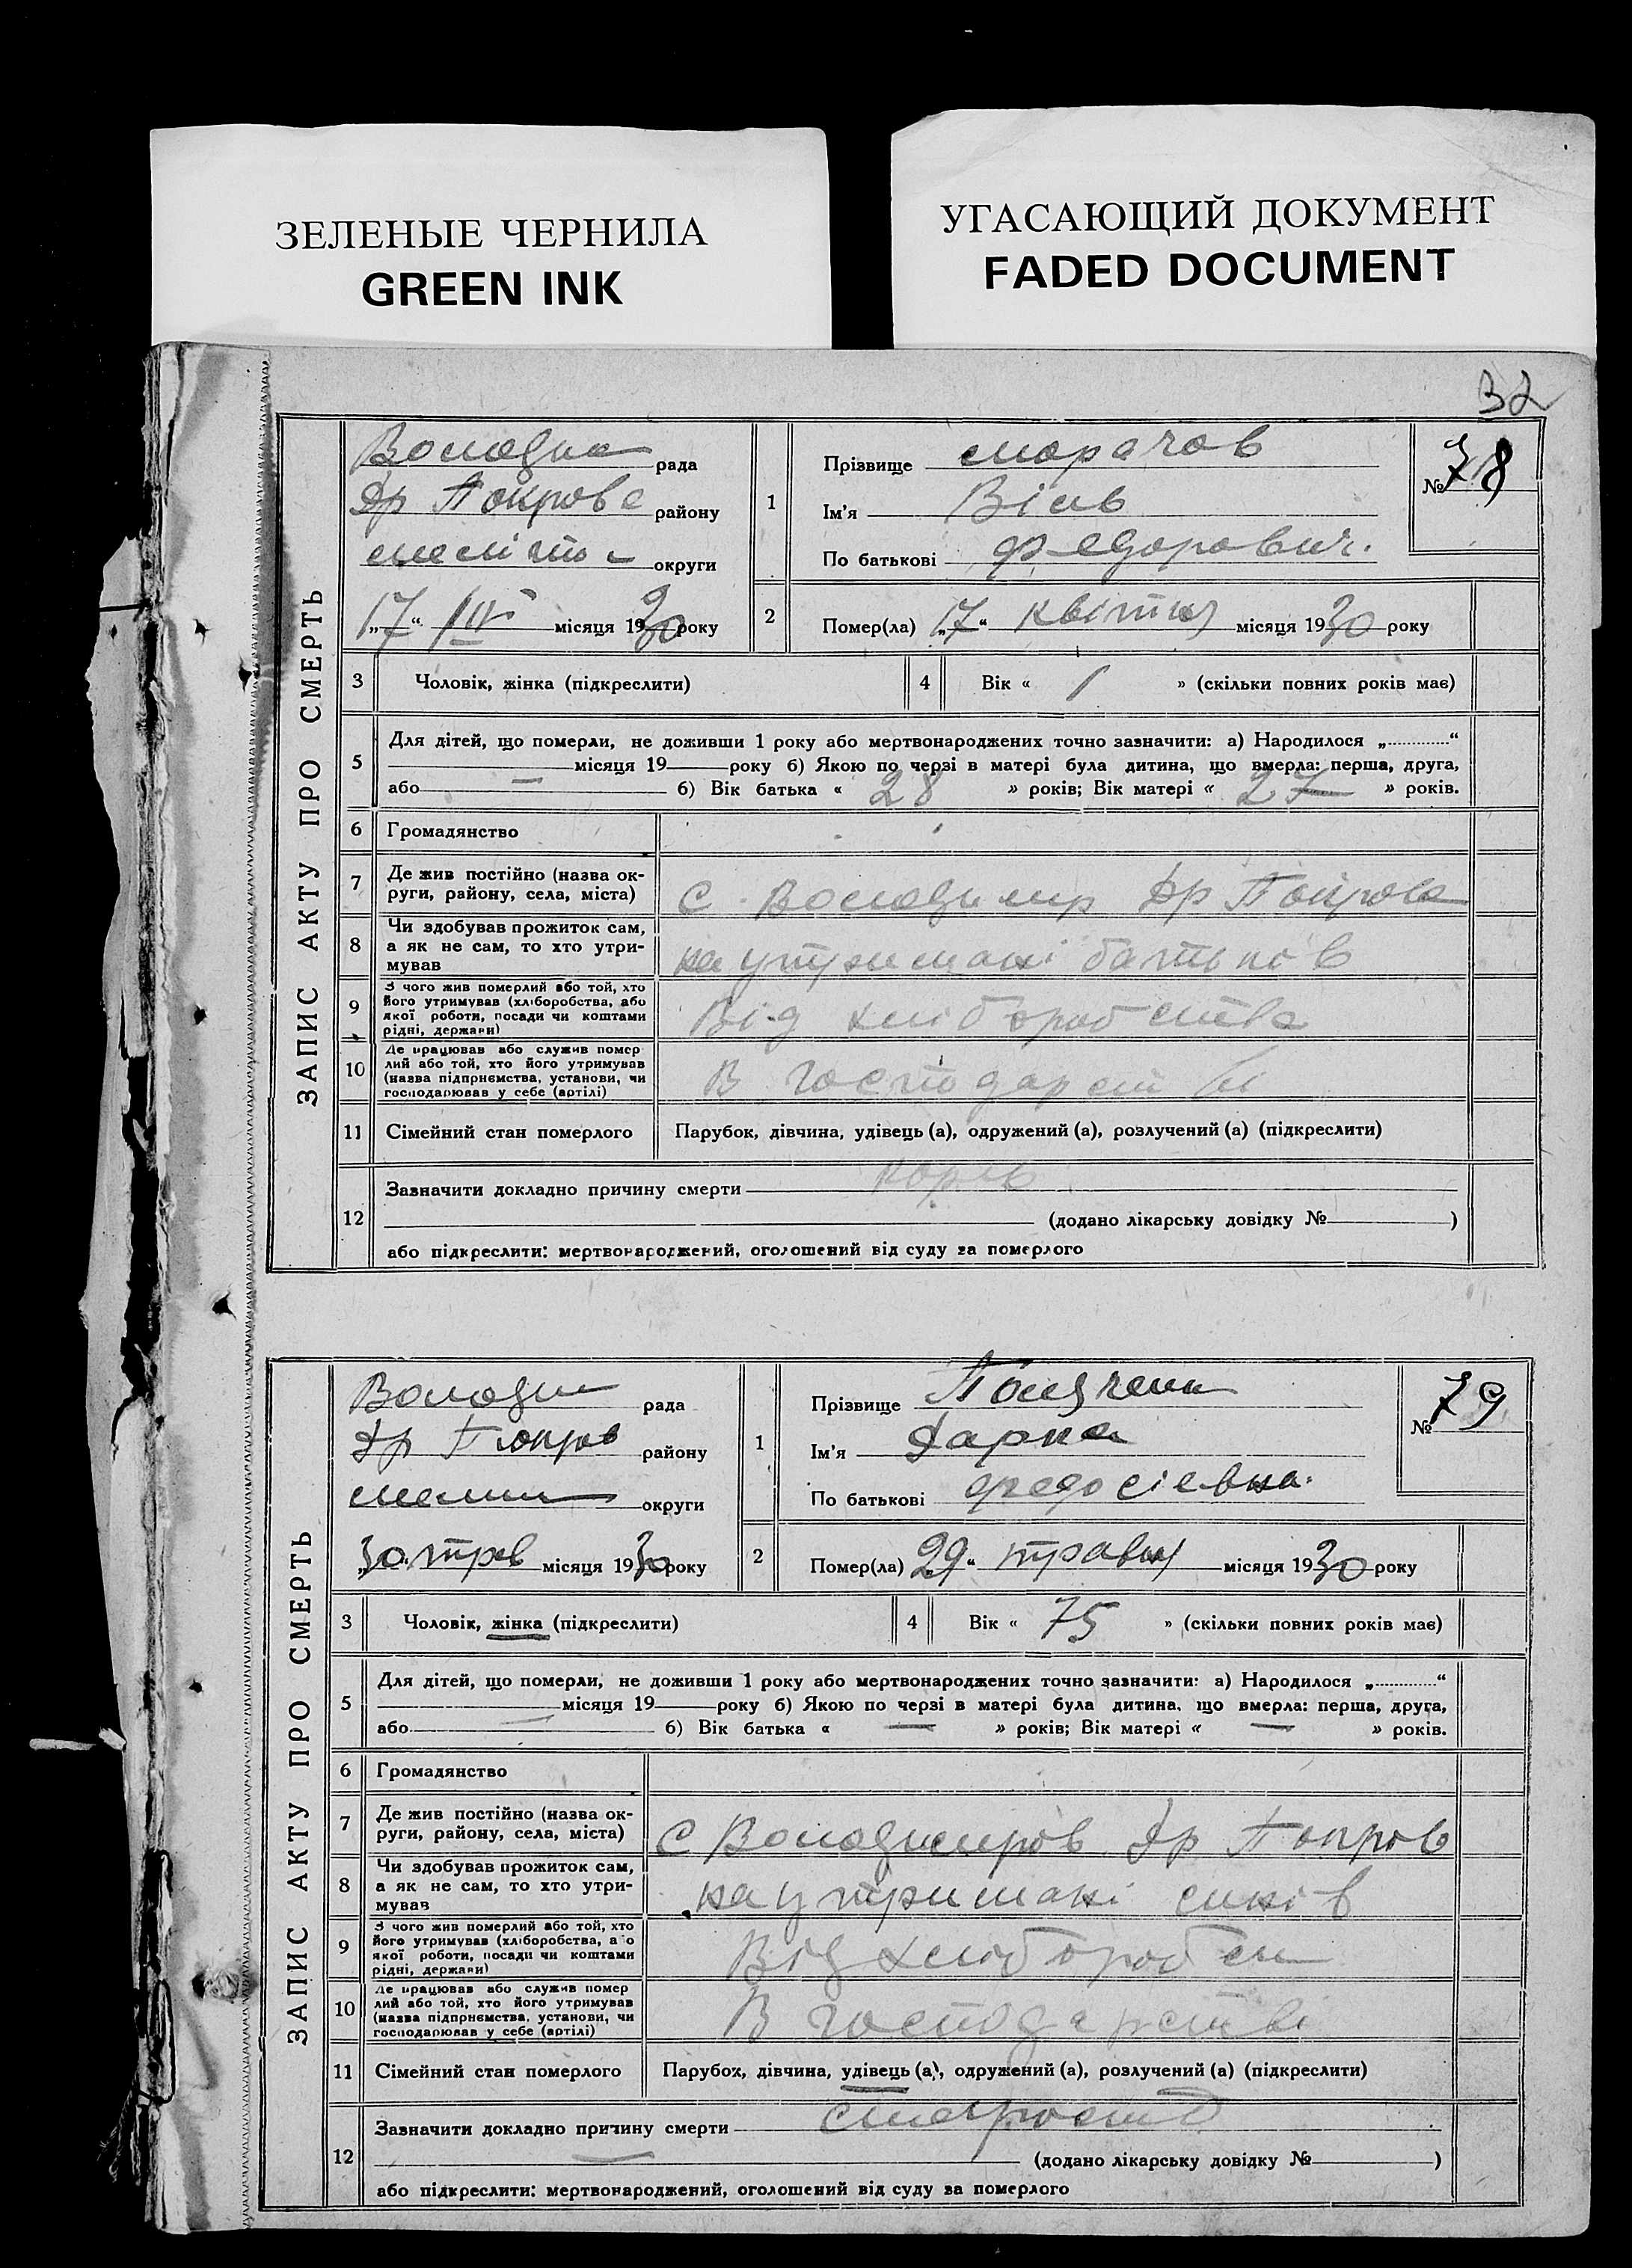 ЗЕЛЕНЫЕ ЧЕРНИЛА
GREEN INK
УГАСАЮЩИЙ ДОКУМЕНТ
FADED DOCUMENT
32
ЗАПИС АКТУ ПРО СМЕРТЬ
рада
Др Покров району
округи
„17“ місяця 1930 року
1
Прізвище
Ім'я Віль
По батькові Федорович.
№ 78
2
Помер(ла) „17“ квітня місяця 1930 року
3 Чоловік, жінка (підкреслити)
4 Вік « 1 » (скільки повних років має)
5 Для дітей, що померли, не доживши 1 року або мертвонароджених точно зазначити: а) Народилося „............“
місяця 19 року б) Якою по черзі в матері була дитина, що вмерла: перша, друга,
або — б) Вік батька « 28 » років; Вік матері « 27 » років.
6 Громадянство
7 Де жив постійно (назва ок-
руги, району, села, міста)
с. Володимир Др Покров
8 Чи здобував прожиток сам,
а як не сам, то хто утри-
мував
на утримані батьків
9 З чого жив померлий або той, хто
його утримував (хліборобства, або
якої роботи, посади чи коштами
рідні, держави)
Від хліборобства
10 Де працював або служив помер
лий або той, хто його утримував
(назва підприємства, установи, чи
господарював у себе (артілі)
В господарстві
11 Сімейний стан померлого
Парубок, дівчина, удівець (а), одружений (а), розлучений (а) (підкреслити)
12 Зазначити докладно причину смерти корь
(додано лікарську довідку № )
або підкреслити: мертвонароджений, оголошений від суду за померлого
ЗАПИС АКТУ ПРО СМЕРТЬ
рада
Др Покров району
округи
„30“ трав місяця 1930 року
1
Прізвище
Ім'я Дарка
По батькові Федосієвна.
№ 79
2
Помер(ла) „29“ травня місяця 1930 року
3 Чоловік, жінка (підкреслити)
4 Вік « 75 » (скільки повних років має)
5 Для дітей, що померли, не доживши 1 року або мертвонароджених точно зазначити: а) Народилося „............“
місяця 19 року б) Якою по черзі в матері була дитина, що вмерла: перша, друга,
або — б) Вік батька « — » років; Вік матері « — » років.
6 Громадянство
7 Де жив постійно (назва ок-
руги, району, села, міста)
с Володимиров Др Покров
8 Чи здобував прожиток сам,
а як не сам, то хто утри-
мував
на утримані синів
9 З чого жив померлий або той, хто
його утримував (хліборобства, або
якої роботи, посади чи коштами
рідні, держави)
Від хлібороб
10 Де працював або служив помер
лий або той, хто його утримував
(назва підприємства, установи, чи
господарював у себе (артілі)
В господарстві
11 Сімейний стан померлого
Парубок, дівчина, удівець (а), одружений (а), розлучений (а) (підкреслити)
12 Зазначити докладно причину смерти
— (додано лікарську довідку № )
або підкреслити: мертвонароджений, оголошений від суду за померлого